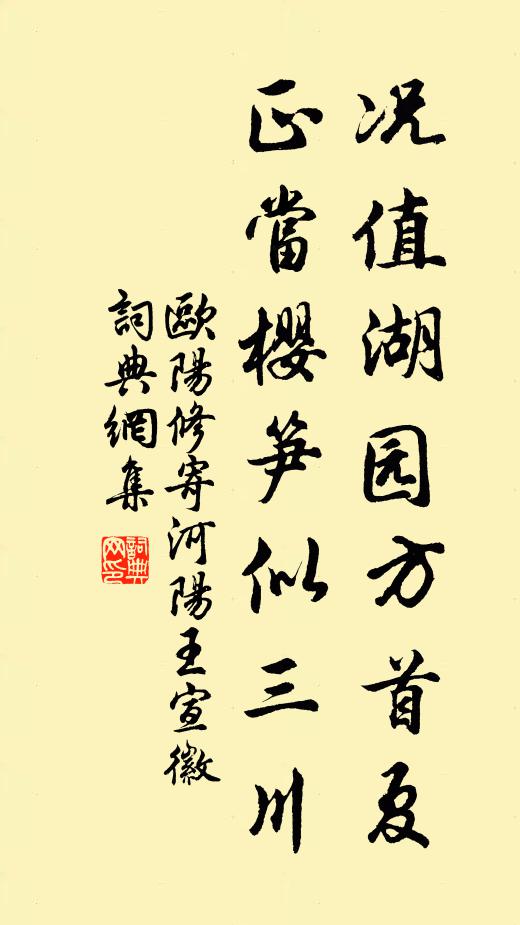 况值湖园方首夏
正當櫻笋似三川
歐陽修寄河陽王宣徽
詞典網集
詞典
网印